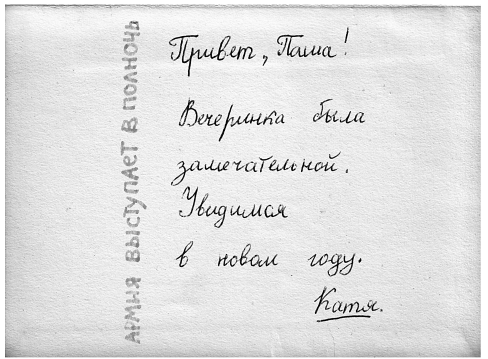 Привет, Паша!
Вечеринка была
замечательной.
Увидимся
в новом году.
Катя.
АРМИЯ ВЫСТУПАЕТ В ПОЛНОЧЬ